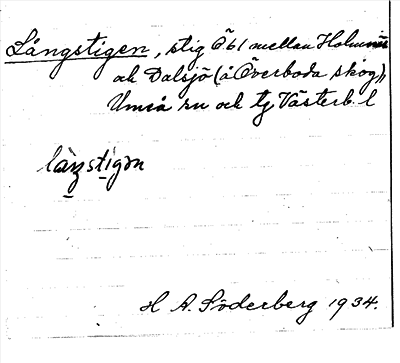 Långstigen, stig Ö bl mellan Holmsjö
och Dalsjö (å Överboda skog),
Umeå sn och tg Västerb. l
långstigən
H A. Söderberg 1934.